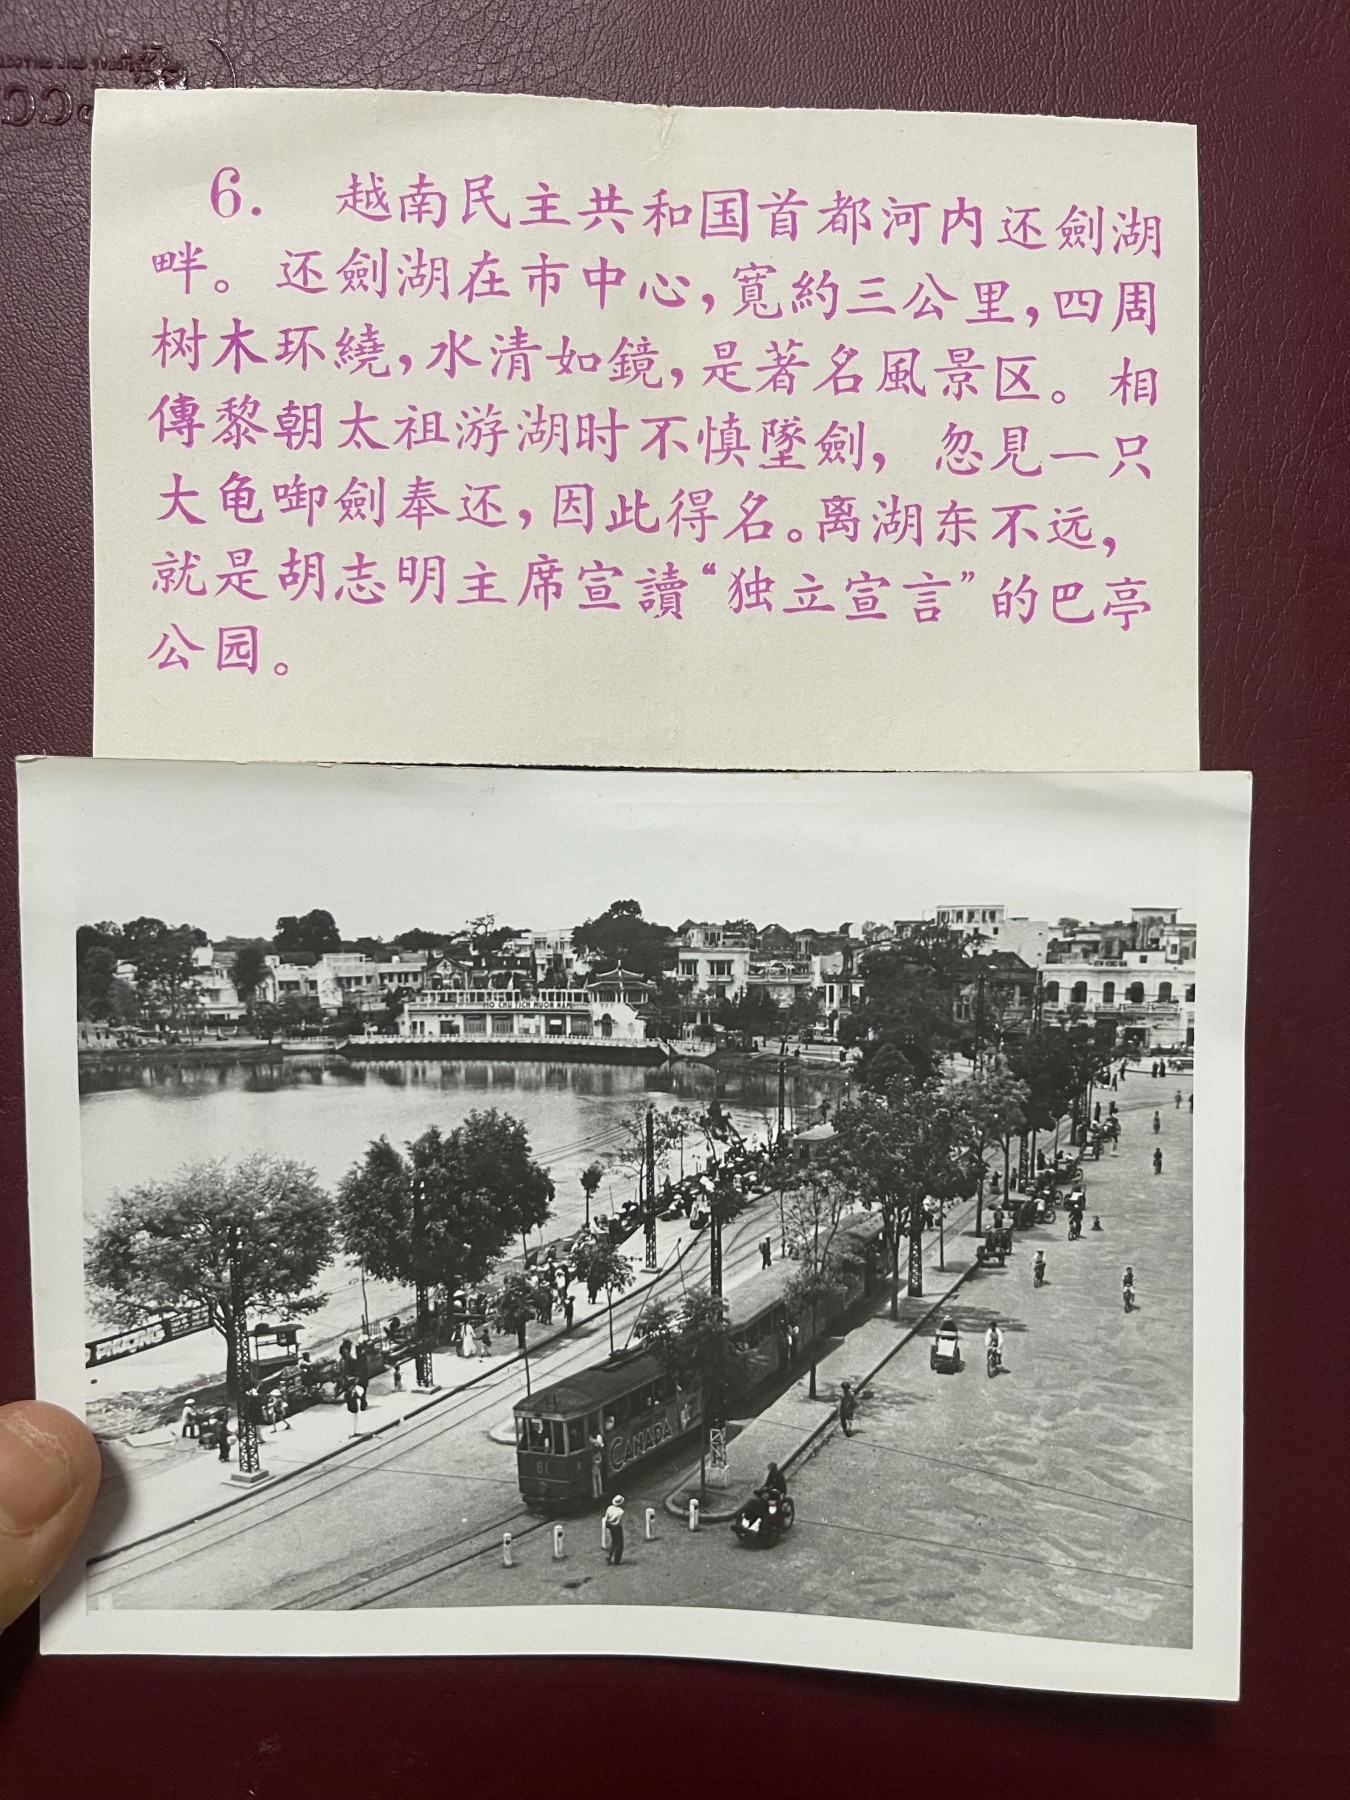 6. 越南民主共和国首都河内还劍湖
畔。还劍湖在市中心，寬約三公里，四周
树木环繞，水清如鏡，是著名風景区。相
傳黎朝太祖游湖时不慎墜劍，忽見一只
大龟啣劍奉还，因此得名。离湖东不远，
就是胡志明主席宣讀“独立宣言”的巴亭
公园。
HO CHU TICH MUON NAM
CANADA
61